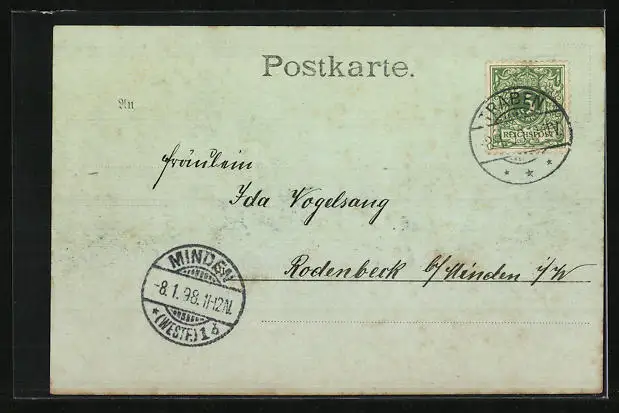 Postkarte.
An
REICHSPOST
Fräulein
Ida Vogelsang
Rodenbeck b/Minden i/W
MINDEN
-8.1.98.11-12N.
*(WESTF.)1